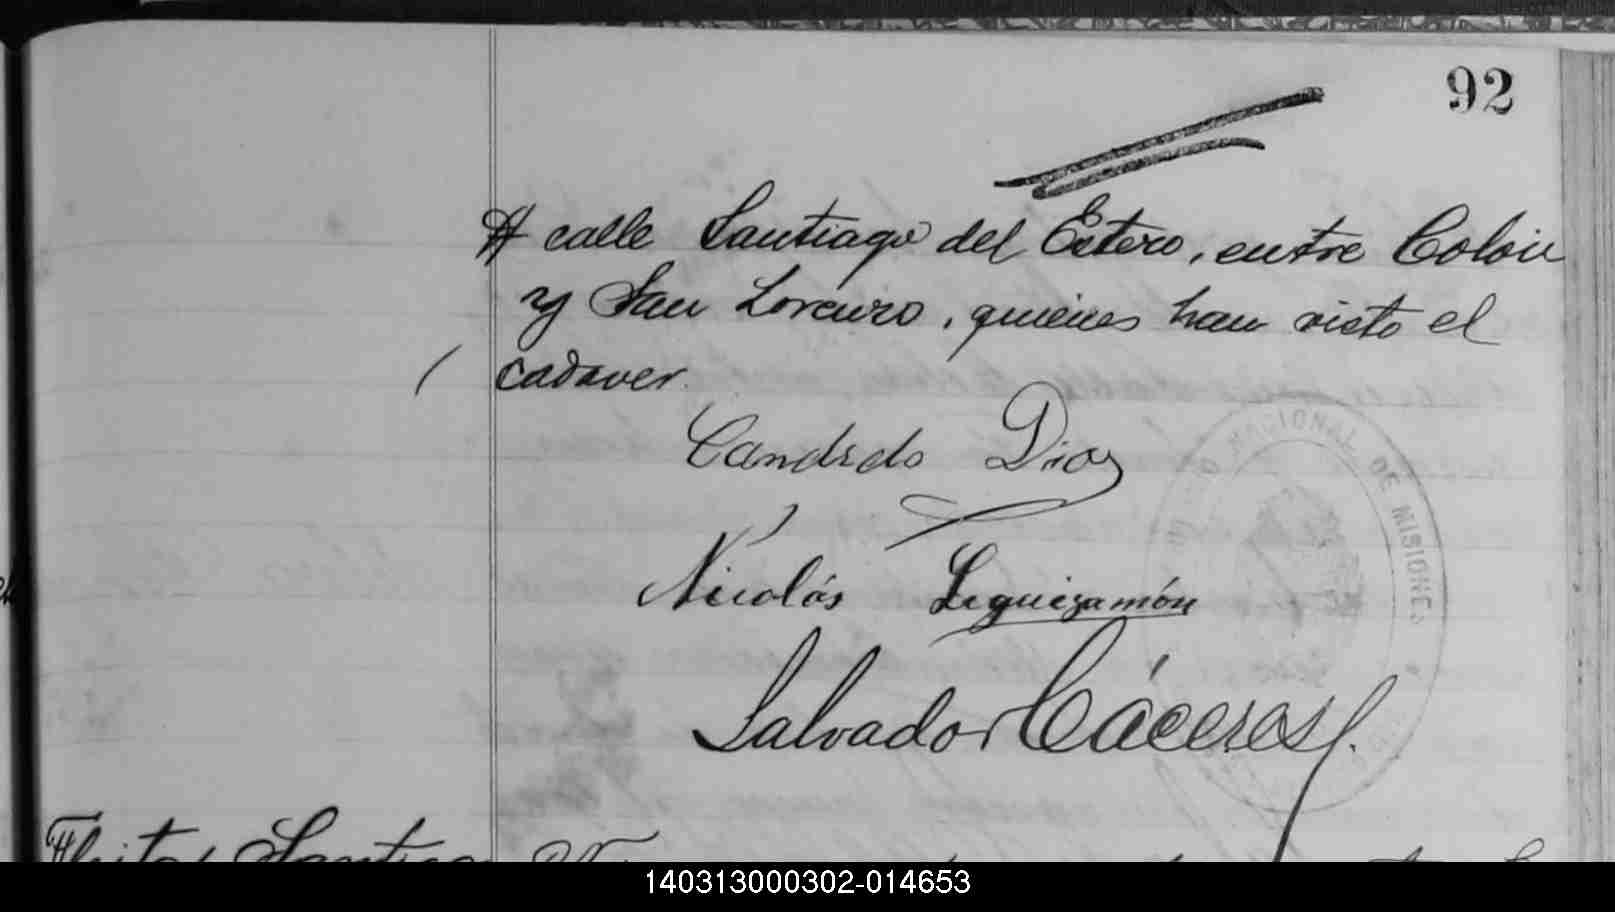 92
# calle Santiago del Estero, entre Colón
y San Lorenzo, quienes han visto el
cadaver.
Candido Diaz
Nicolás Leguizamón
Salvador Cáceres
NACIONAL DE MISIONES
Santiago
140313000302-014653